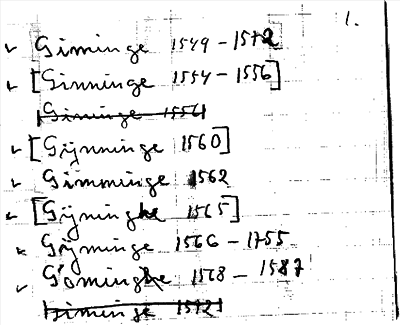 1.
Giminge 1549-1572
[Ginninge 1554-1556]
Giminge 1556
[Gÿnninge 1560]
Gimminge 1562
[Gÿninghe 1565]
Gÿminge 1566-1755
Gominghe 1568-1587
Giminge 1572